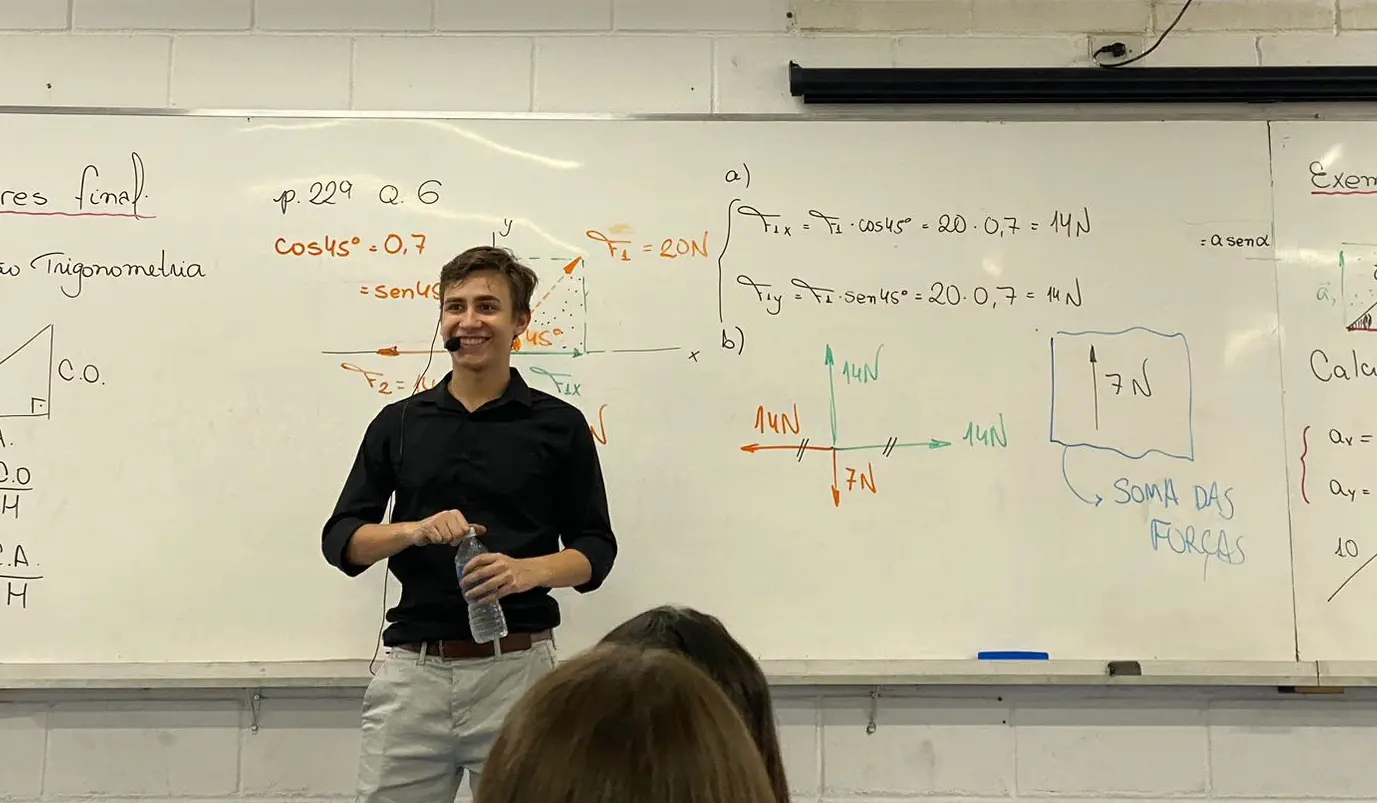 res final.
Trigonometria
C.O.
C.O
H
C.A.
H
p. 229 Q. 6
cos45° = 0,7
= sen45
y
F1 = 20N
45°
x
F2 =
F1x
N
a)
F1x = F1 · cos45° = 20 · 0,7 = 14N
F1y = F1 · sen45° = 20 · 0,7 = 14N
b)
14N
14N
14N
7N
7N
SOMA DAS
FORÇAS
= a senα
Exem
Calcu
ax =
ay =
10